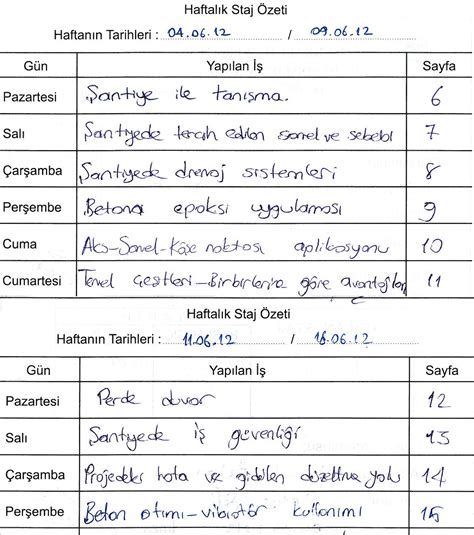 Haftalık Staj Özeti
Haftanın Tarihleri : 04.06.12 / 09.06.12
Gün Yapılan İş Sayfa
Pazartesi Şantiye ile tanışma. 6
Salı Şantiyede tercih edilen şönel ve sebebi 7
Çarşamba Şantiyede drenaj sistemleri 8
Perşembe Betona epoksi uygulaması 9
Cuma Aks-Şanel-Köşe noktası aplikasyonu 10
Cumartesi Temel Çeşitleri-Birbirlerine göre avantajları 11
Haftalık Staj Özeti
Haftanın Tarihleri : 11.06.12 / 16.06.12
Gün Yapılan İş Sayfa
Pazartesi Perde duvar 12
Salı Şantiyede iş güvenliği 13
Çarşamba Projedeki hata ve gidilen düzeltme yolu 14
Perşembe Beton atımı-vibratör kullanımı 15